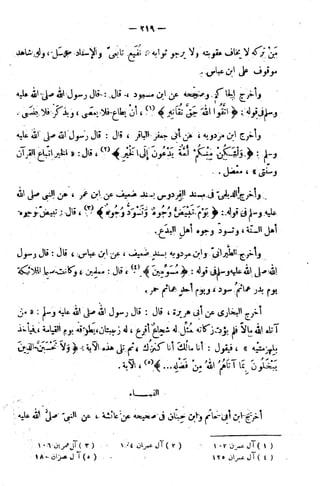 — ٢١٩ —
مَنْ تركه لا يخاف عقوبته ولا يرجو ثوابه » نُفَيع تابعىّ والإسناد مرسل، وله شاهد
موقوف على ابن عباس.
وأخرج الحاكم وصححه عن أنس قال: قال رسول الله صلى الله عليه
وسلم فى قوله: ﴿ اتَّقُوا اللهَ حَقَّ تُقَاتِهِ ﴾ (١)، أن يطاع فلا يعصى، ويذكر فلا ينسى.
وأخرج ابن مردويه، عن أبى جعفر الباقر، قال: قال رسول الله صلى الله عليه
وسلم: ﴿ وَلْتَكُنْ مِنْكُمْ أُمَّةٌ يَدْعُونَ إِلَى الْخَيْرِ ﴾ (٢)، قال: « الخير اتباع القرآن
وسنّتى »، معضل.
وأخرج الديلمى فى مسند الفردوس بسند ضعيف عن ابن عمر، عن النبى صلى الله
عليه وسلم فى قوله: ﴿ يَوْمَ تَبْيَضُّ وُجُوهٌ وَتَسْوَدُّ وُجُوهٌ ﴾ (٣)، قال: تبيضّ وجوه
أهل السنة، وتسودّ وجوه أهل البدع.
وأخرج الطبرانىّ وابن مردويه بسند ضعيف، عن ابن عباس، قال: قال رسول
الله صلى الله عليه وسلم فى قوله: ﴿ مُسَوِّمِينَ ﴾ (٤)، قال: معلمين، وكانت سيما الملائكة
يوم بدر عمائم سود، ويوم أحد عمائم حمر.
وأخرج البخارى عن أبى هريرة، قال: قال رسول الله صلى الله عليه وسلم: « من
آتاه الله مالاً فلم يؤد زكاته مُثِّل له شجاع أقرع، له زبيبتان، يطوّقه يوم القيامة، فيأخذ
بلهزمتيه »، فيقول: أنا مالك أنا كنزك، ثم تلى هذه الآية: ﴿ وَلَا تَحْسَبَنَّ الَّذِينَ
يَبْخَلُونَ بِمَا آتَاهُمُ اللهُ مِنْ فَضْلِهِ... ﴾ (٥)، الآية.
النساء
أخرج ابن أبى حاتم وابن حبّان فى صحيحه عن عائشة، عن النبىّ صلى الله عليه
(١) آل عمران ١٠٢ (٢) آل عمران ١٠٤ (٣) آل عمران ١٠٦
(٤) آل عمران ١٢٥ (٥) آل عمران ١٨٠